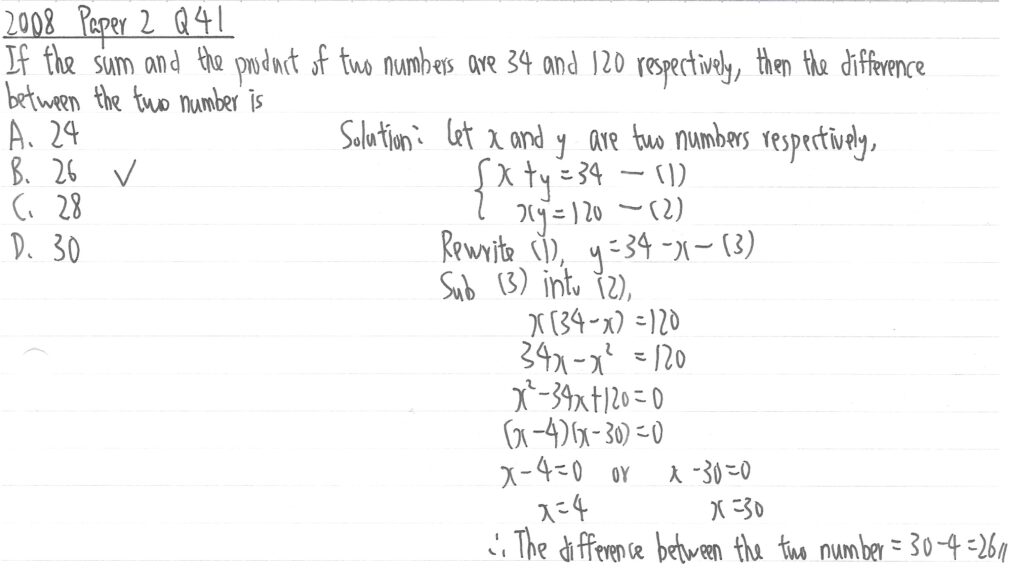 2008 Paper 2 Q41
If the sum and the product of two numbers are 34 and 120 respectively, then the difference
between the two number is
A. 24
B. 26 ✓
C. 28
D. 30
Solution: let x and y are two numbers respectively,
{x + y = 34 — (1)
xy = 120 — (2)
Rewrite (1), y = 34 - x — (3)
Sub (3) into (2),
x(34-x) = 120
34x - x² = 120
x² - 34x + 120 = 0
(x-4)(x-30) = 0
x-4=0 or x-30=0
x=4 x=30
∴ The difference between the two number = 30-4 = 26//